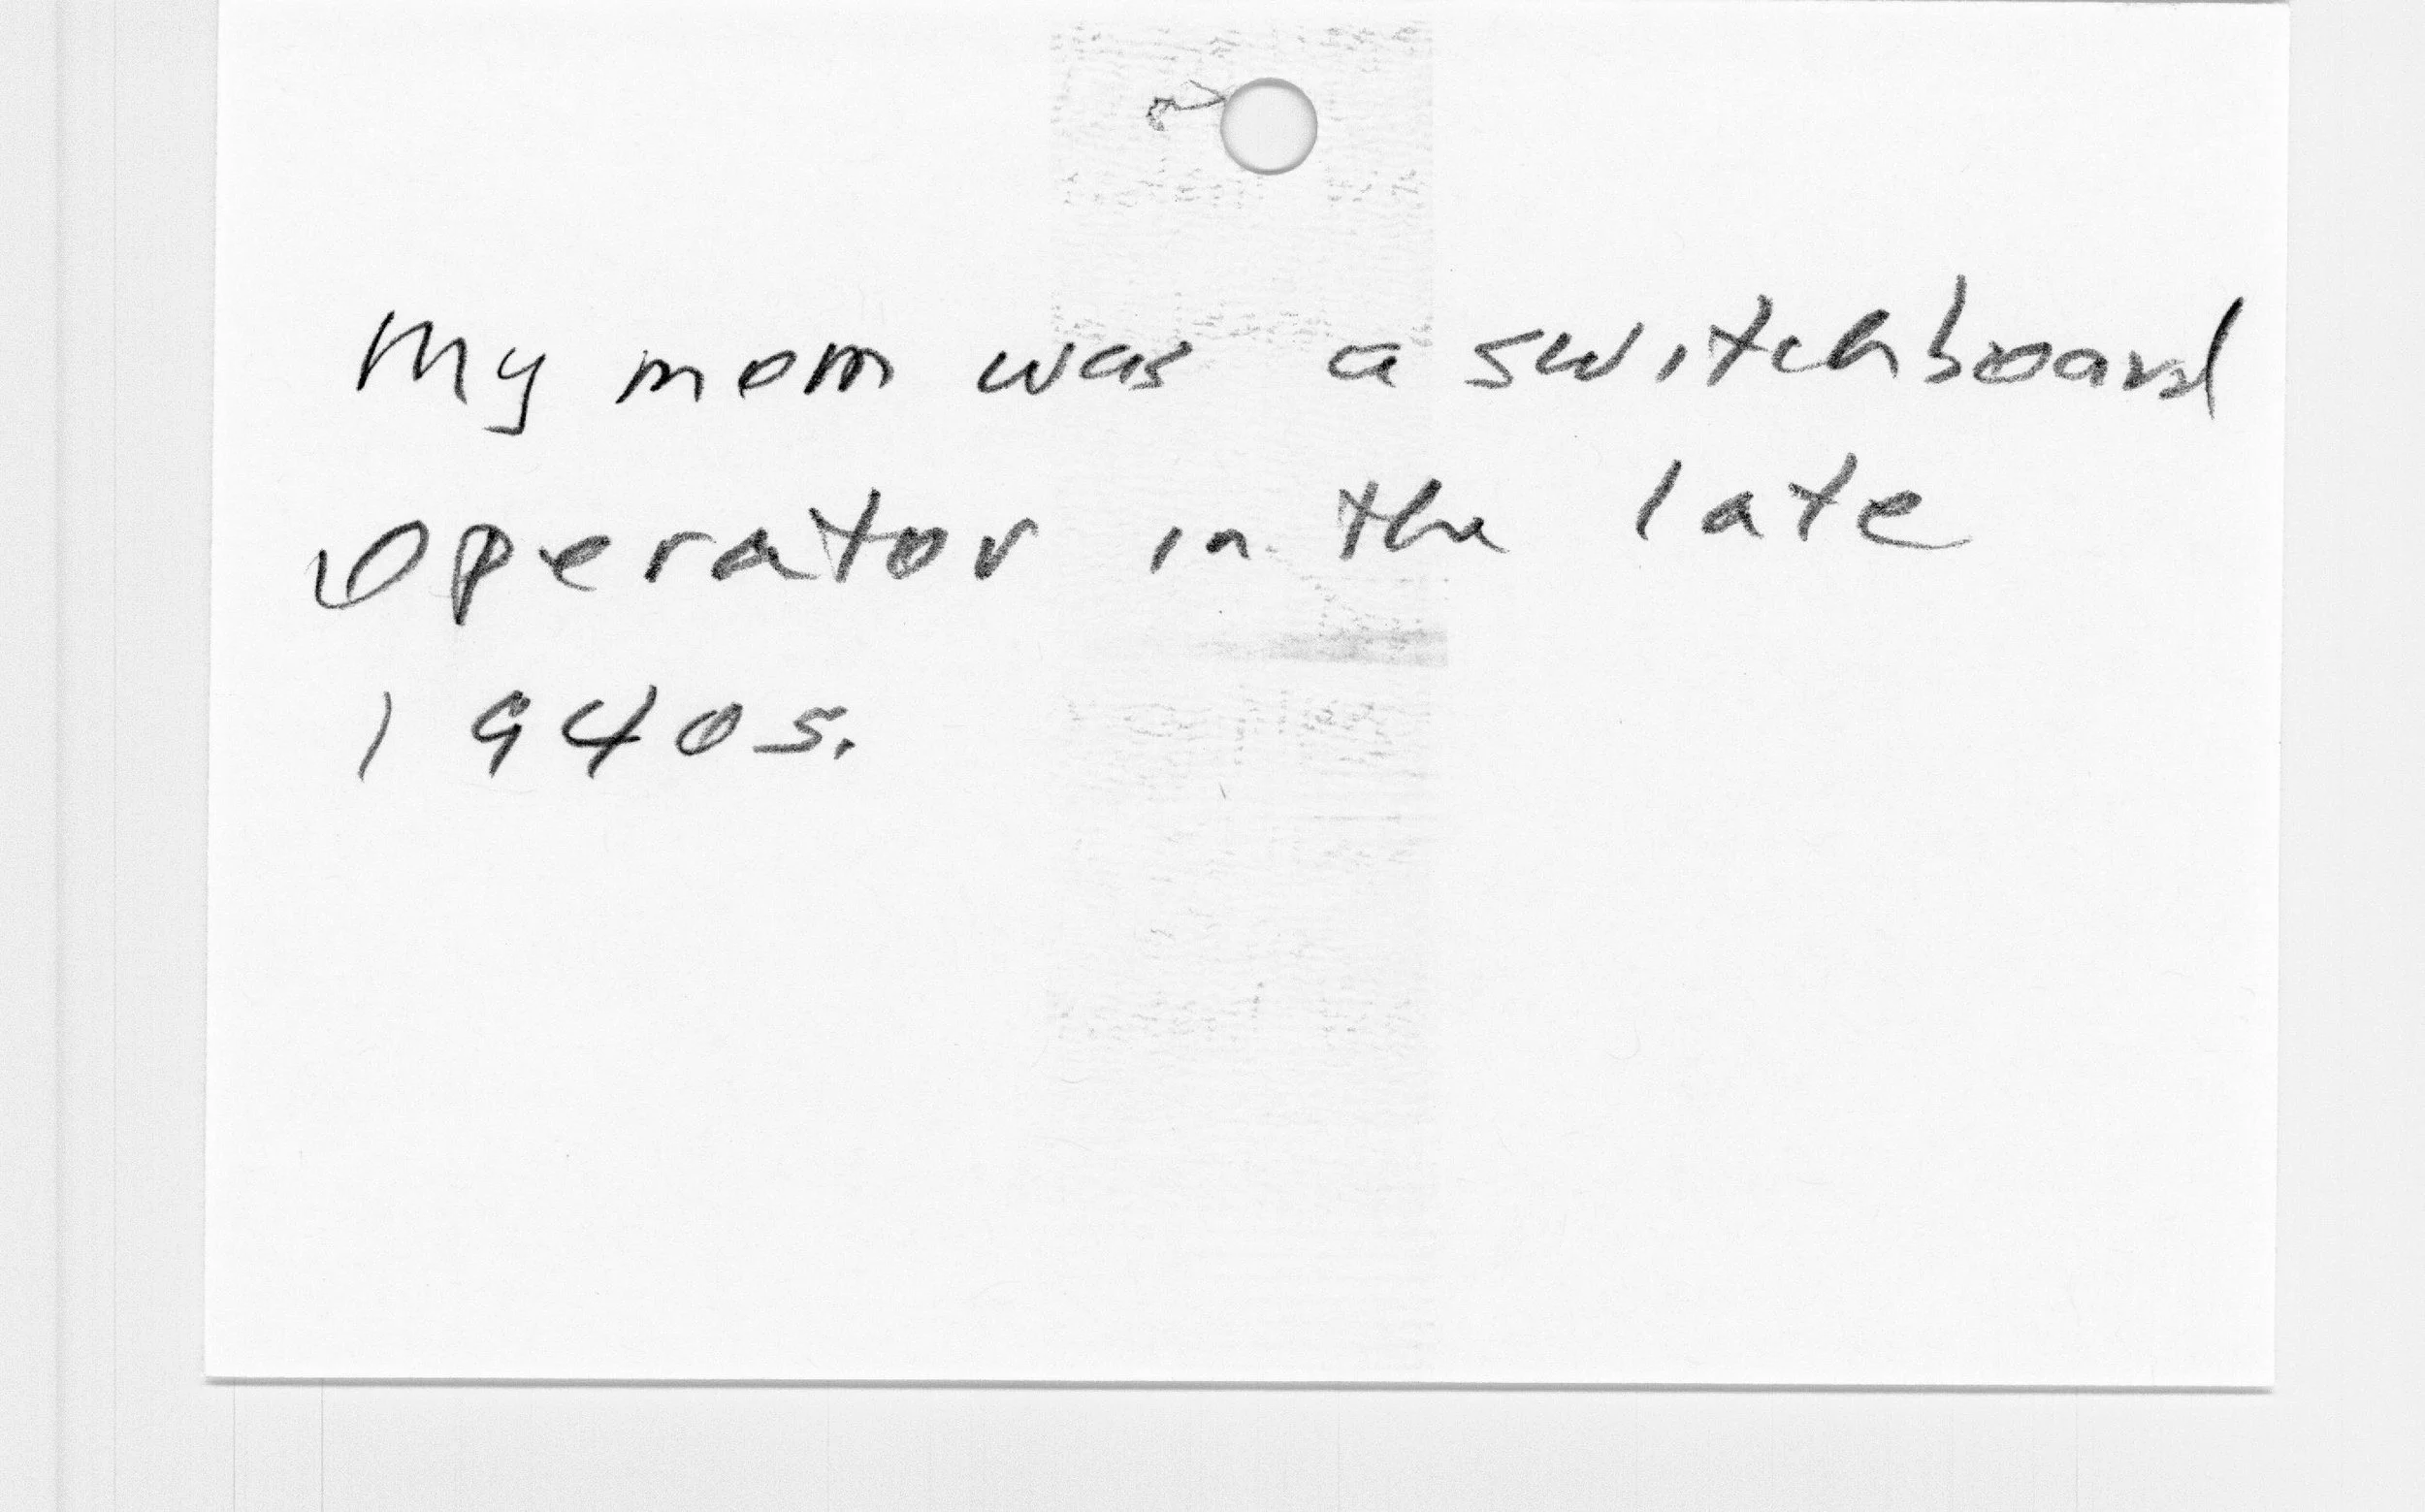 My mom was a switchboard
operator in the late
1940s.